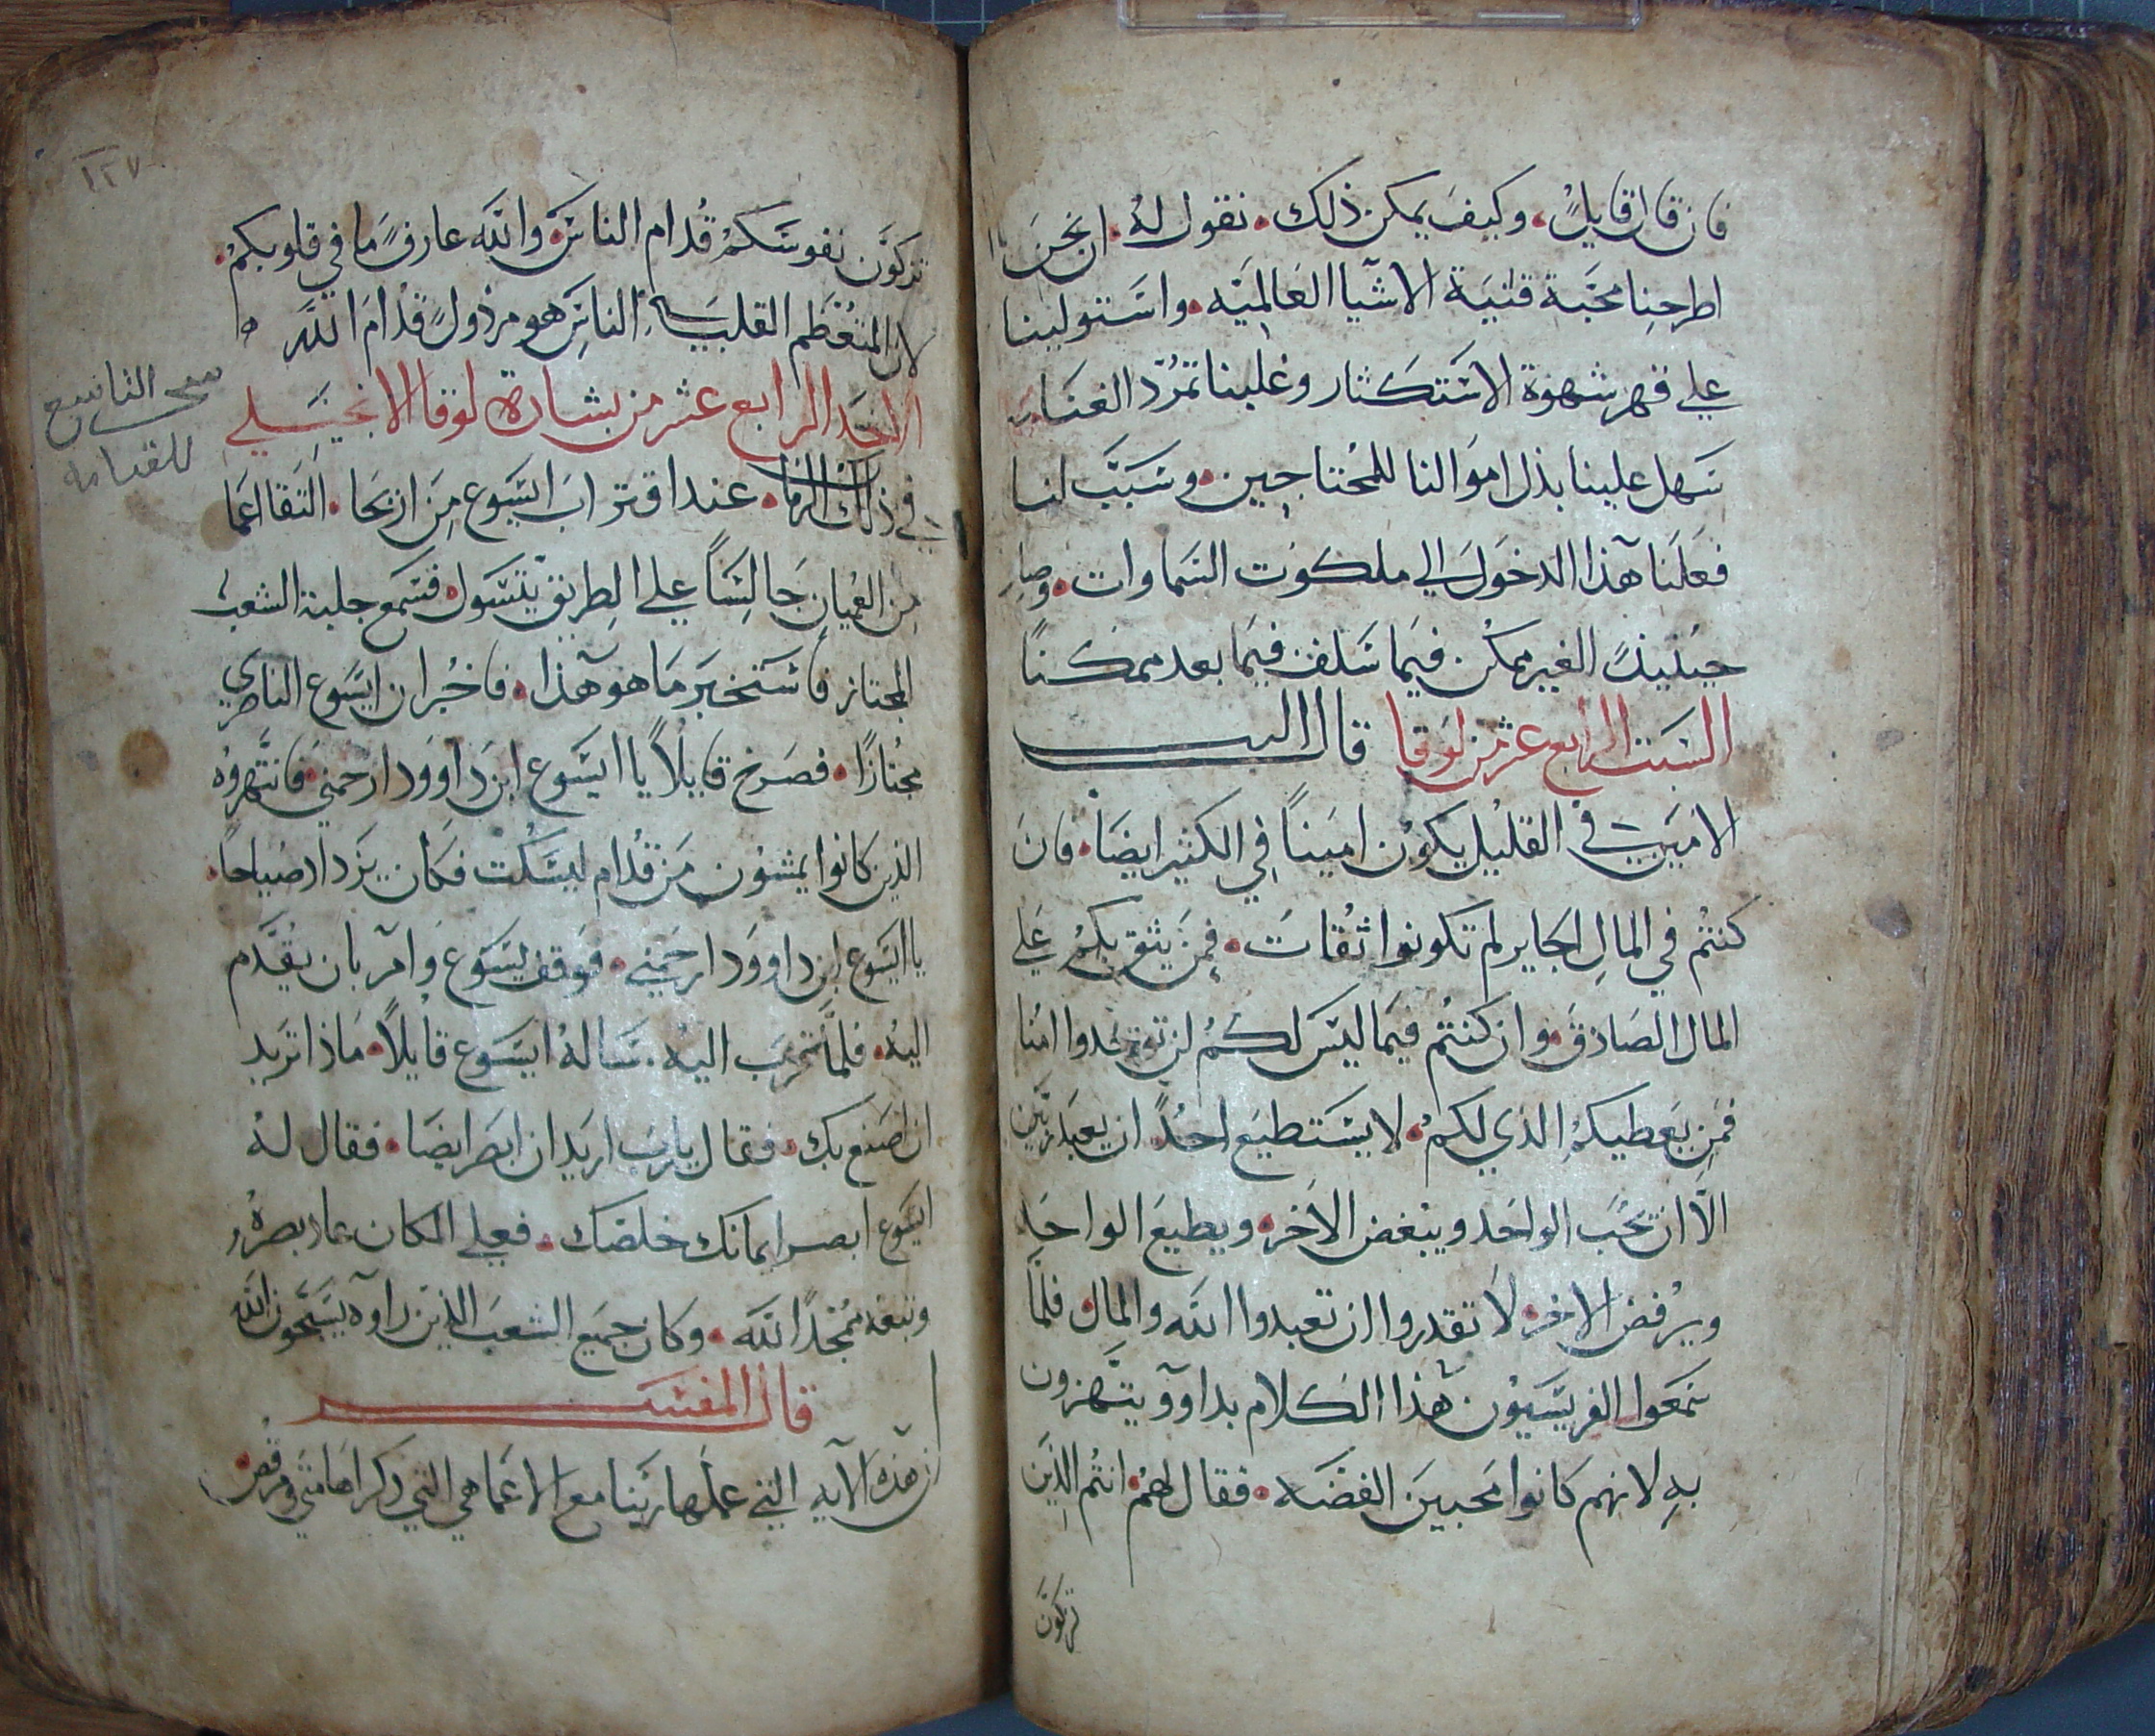 فان قال قايلٌ. وكيفَ يمكن ذلك. نقول لهُ. ان نحن
اطرحنا محبّة قنيَة الاشيا العَالميَّه. واستولينا
علي قهر شهوة الاستكثار وغلبنا تمرّد الغنا
سَهل علينا بذل اموَالنا للمُحتاجين. وسَبّبَ لنا
فعَلنا هذا الدخَول الي ملكوت السَماوات. وصار
حينيذٍ الغير ممكن فيمَا سَلف فيمَا بعد ممكنًا
السَبت الرابع عشر من لوقا قال الرب
الامين في القليل يكون امينًا في الكثير ايضَا. فان
كنتُم في المالِ الجاير لم تكونوا ثقات. فمَن يثق بكمْ عَلي
المال الصَادق. وان كنتُم فيمَا ليسَ لكُم لن توجدوا امُنا
فمَن يعَطيكم الذي لكمْ. لا يسَتطيع احدٌ ان يعبَد ربّين
الّا ان يحُبّ الواحَد ويبغض الاخر. ويطيع الواحَد
ويرُفض الاخر. لا تقدروا ان تعبدوا الله والمال. فلما
سَمعَوا الفريسَيون هذا الكلام بداوو يتَهزون
بهِ لانهم كانوا محبينَ الفضَه. فقال لهمْ. انتُم الذين
تزكون
١٢٧
تزكوَّن نفوسَكمْ قُدام الناسَ. والله عارفٌ ما في قلوبكمْ.
لان المتعُظم القلب الناسِ هو مرذولٌ قدامَ اللهِ
الاحَد الرابع عشر من بشارة لوقا الانجيَلي
سحر التاسع
للقيامه
في ذلك الزمان. عند اقترابَ ايسَوع مِن اريحَا. التقا اعمَا
من العُميان جَالسًَا علي الطريق يتسَول. فسَمع جلبة الشعب
المجتاز فاسَتخبرَ مَا هو هذا. فاخبُر ان ايسَوع الناصري
مجُتازًا. فصَرخ قايلاً يا ايسَوع ابن دَاوود ارحمني. فانتهروهُ
الذين كانوا يمشوُن من قدُام ليسَكت فكان يزداد صيَاحاً.
يا ايسَوع ابن داوود ارحَمني. فوَقف يسَوع وَامر بان يقُدَّم
اليهُ. فلمَّا تقرب اليهْ. سَالهُ ايسَوع قايلاً. مَاذا تريد
ان اصَنع بك. فقال ياربَ اريَد ان ابصَر ايضَا. فقال لهُ
ايسَوع ابصر ايمانك خلصَك. فعلي المكان عاد بصرُه و
وتبعَه ممُجَدًا الله. وكان جميعَ الشعبَ الذين راوه يسَبّحون الله
قال المفسَر
ان هذه الايه التي عملَها ربنا مع الاعمَا هي التي ذكراها متي ومرقص.